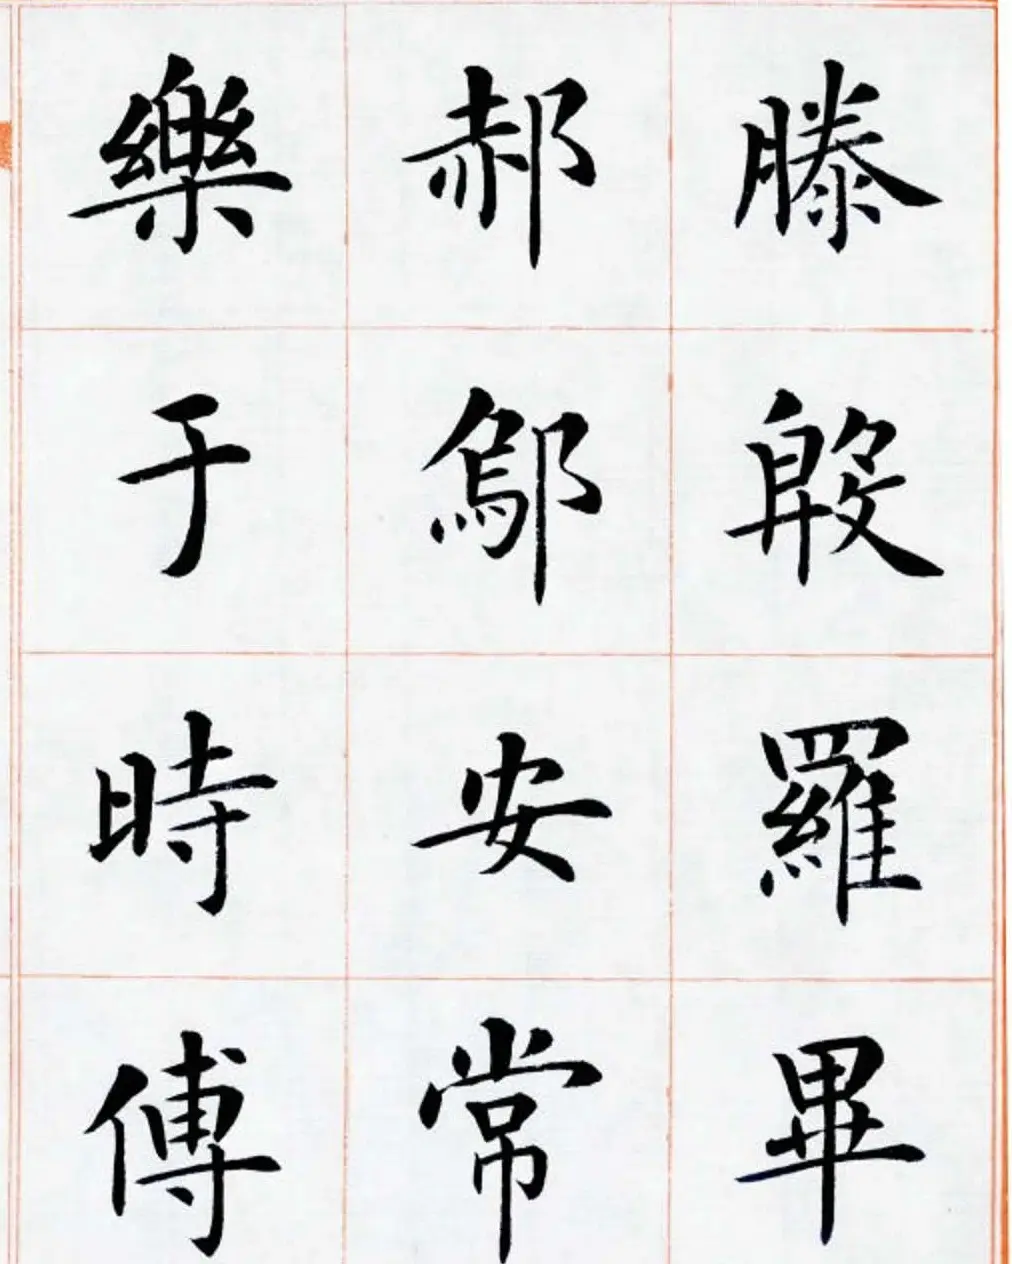 滕殷羅畢
郝鄔安常
樂于時傅